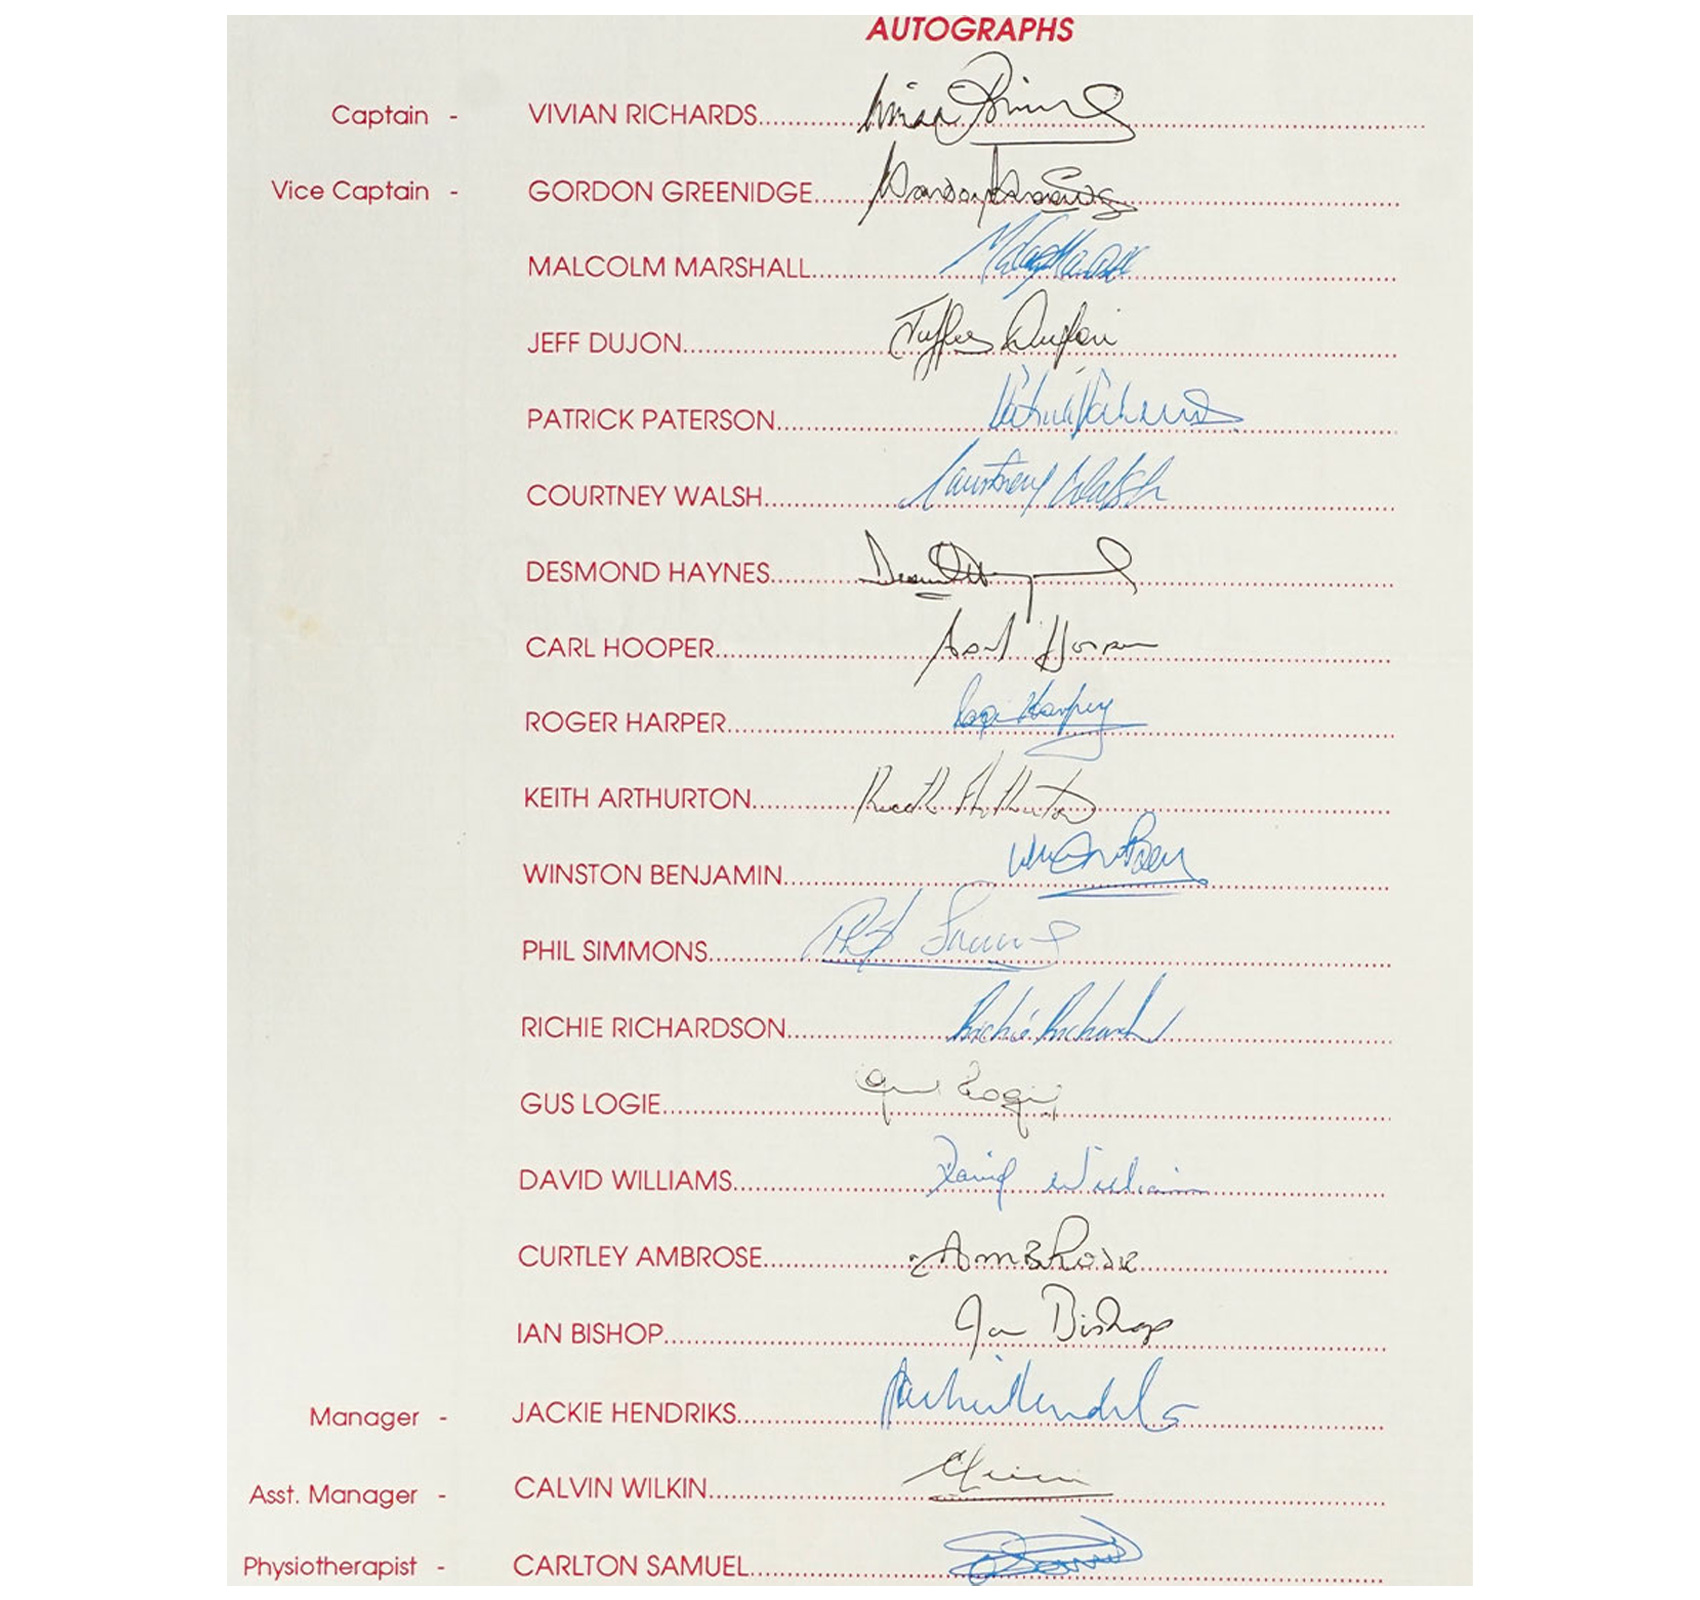 AUTOGRAPHS
Captain - VIVIAN RICHARDS
Vice Captain - GORDON GREENIDGE
MALCOLM MARSHALL
JEFF DUJON
PATRICK PATERSON
COURTNEY WALSH Courtney Walsh
DESMOND HAYNES
CARL HOOPER Carl Hooper
ROGER HARPER Roger Harper
KEITH ARTHURTON Keith Arthurton
WINSTON BENJAMIN
PHIL SIMMONS Phil Simmons
RICHIE RICHARDSON Richie Richardson
GUS LOGIE Gus Logie
DAVID WILLIAMS David Williams
CURTLEY AMBROSE Ambrose
IAN BISHOP Ian Bishop
Manager - JACKIE HENDRIKS Jackie Hendriks
Asst. Manager - CALVIN WILKIN
Physiotherapist - CARLTON SAMUEL